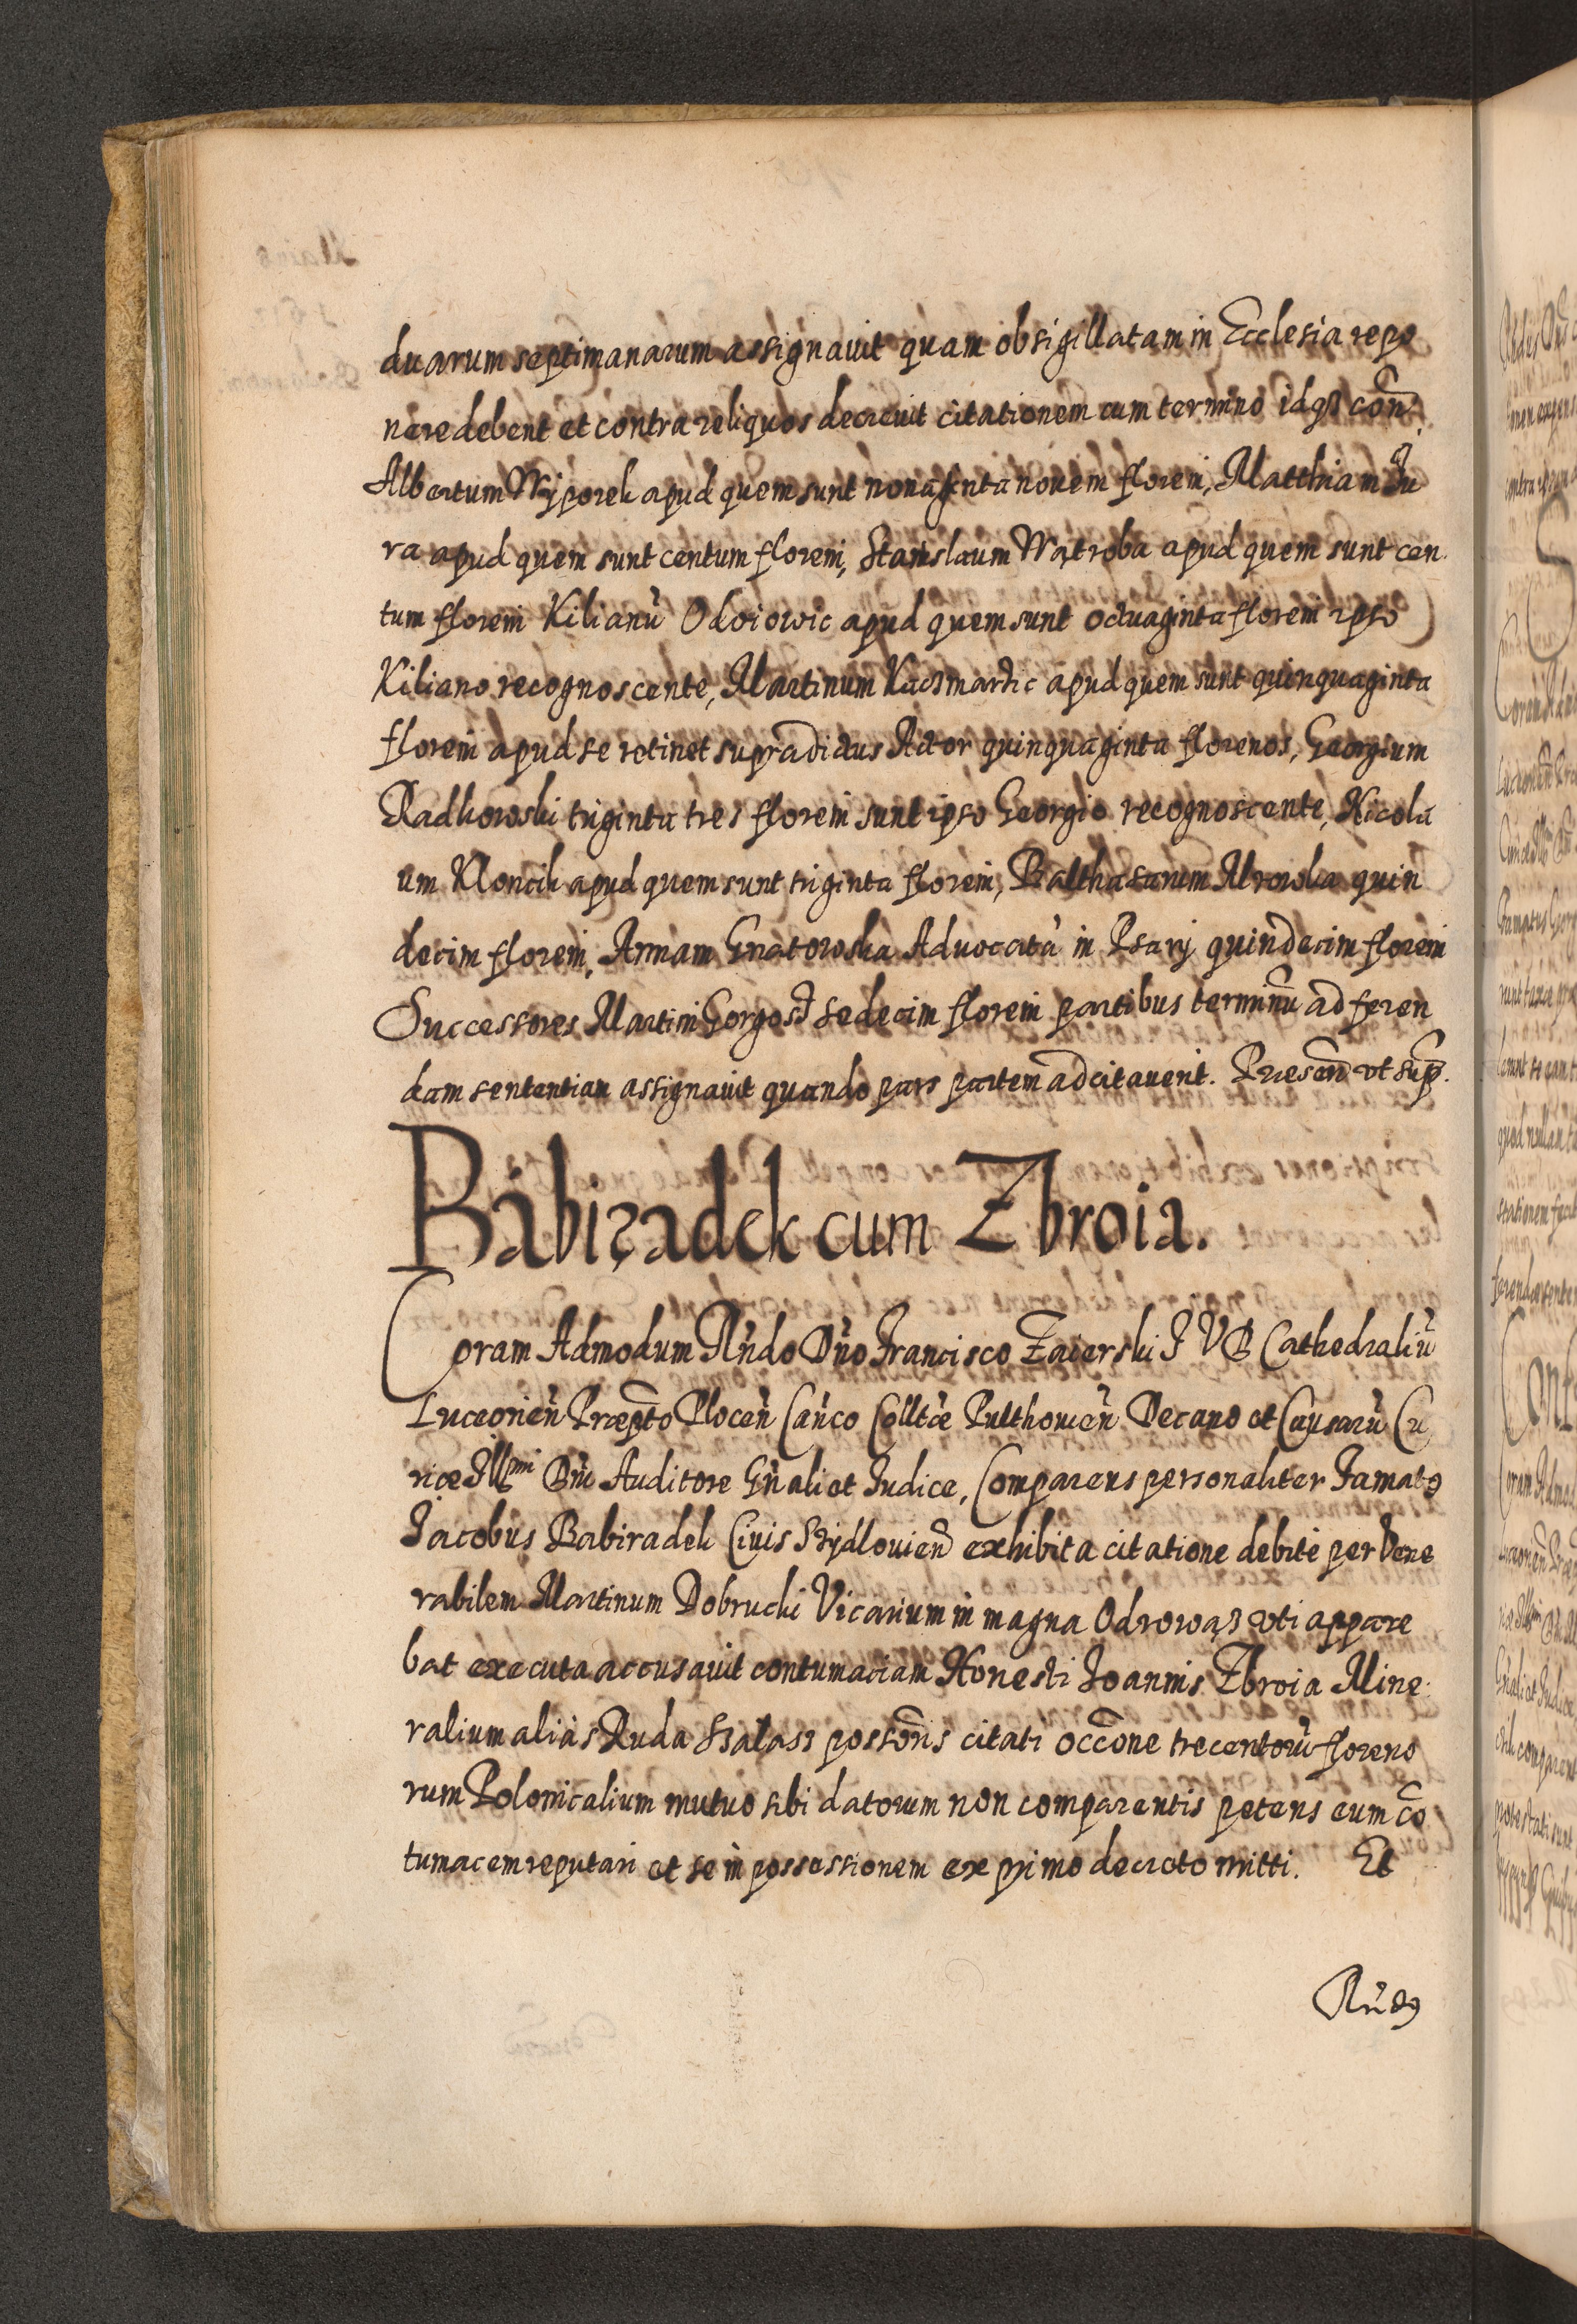 duarum septimanarum assignauit quam obsigillatam in Ecclesia repo
nere debent et contra reliquos decreuit citationem cum termino idq3 con̄
Albertum Wyporek apud quem sunt nonaginta nouem floreni, Matthiam
ra apud quem sunt centum floreni, Stanislaum Wątroba apud quem sunt cen
tum floreni Kilianū Odoiowic apud quem sunt octuaginta floreni ipso
Kiliano recognoscente, Martinum Kaczmarzic apud quem sunt quinquaginta
floreni apud se retinet supradictus Actor quinquaginta florenos, Georgium
Radkowski triginta tres floreni sunt ipso Georgio recognoscente, Nicola
um Kloncik apud quem sunt triginta floreni, Balthasarum Mrowka quin
decim floreni, Annam Gnatowska Aduocatā in Psary quindecim floreni
Successores Martini Gorgosz sedecim floreni partibus terminū ad feren
dam sententiam assignauit quando pars partem adcitauerit. Praesen̄ vt sup.
Babiradek cum Zbroia.
Coram Admodum Rn̄do Dn̄o Francisco Zaierski I V D Cathedraliū
Luceorien̄ Præpto Plocen̄ Can̄co Colltæ Pulthouien̄ Decano et Causarū Cu
riæ Illmi Dn̄i Auditore Gn̄ali et Iudice, Comparens personaliter Famat9
Iacobus Babiradek Ciuis Szydlouien̄ exhibita citatione debite per Vene
rabilem Martinum Dobrucki Vicarium in magna Odrowąz vti appare
bat executa accusauit contumaciam Honesti Ioannis Zbroia Mine
ralium aliàs Ruda Szalasz possōris citati occōne trecentorū floreno
rum Polonicalium mutuo sibi datorum non comparentis petens eum cō
tumacem reputari et se in possessionem ex primo decreto mitti. Et
Rn̄d9